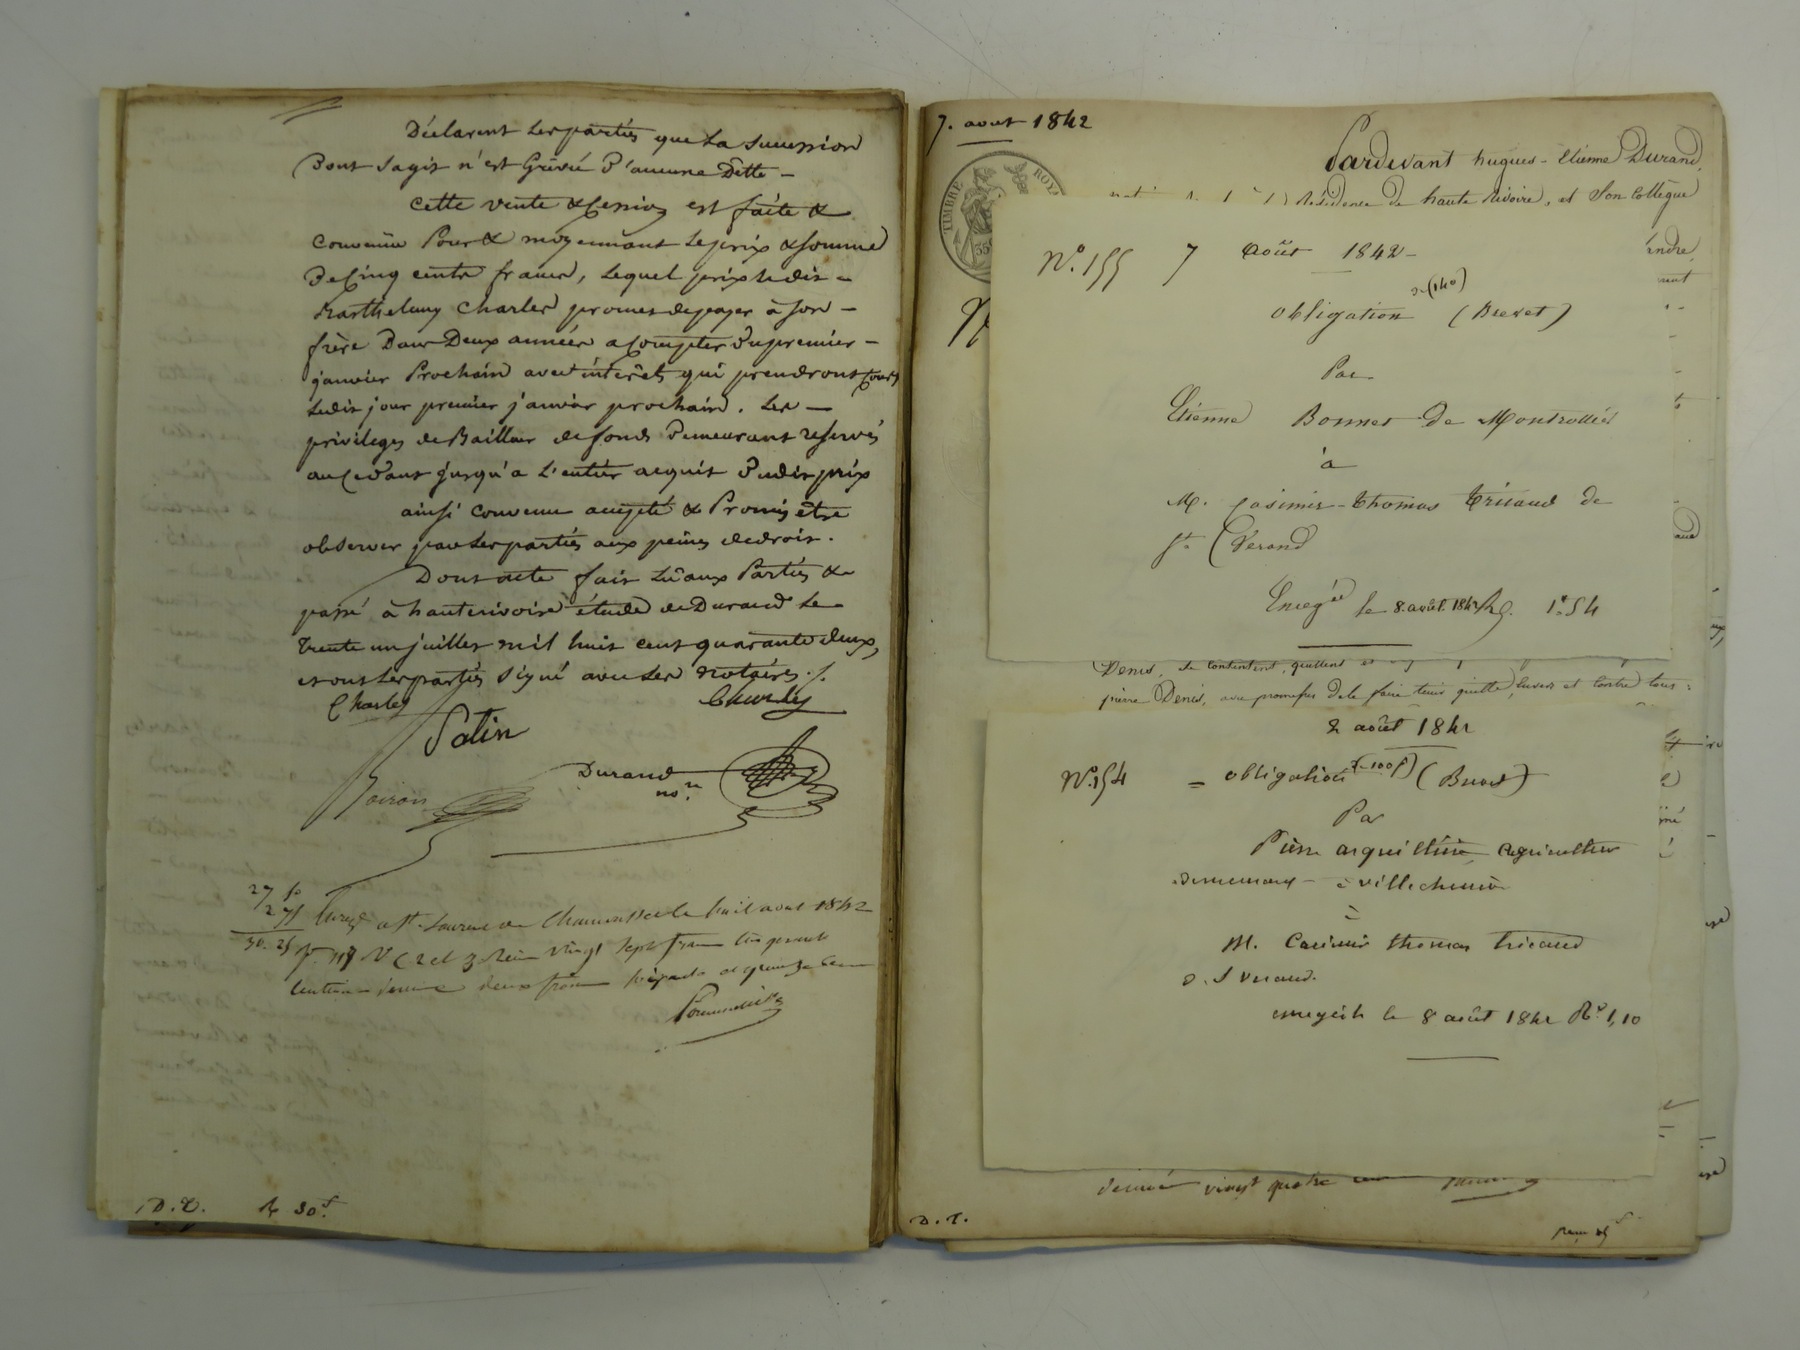 Déclarent les parties que la succession
Dont sagit n'est Grévée D'aucune Dette –
cette vente & Cession est faite &
convenüe Pour & moyennant le prix & somme
De Cinq cents francs, lequel prix ledit –
Barthelemy Charles promet de payer à son –
frère Dans Deux années a Compter Du premier –
janvier Prochain avec intérêts qui prendront Cours
ledit jour premier janvier prochain. Les –
privileges de Bailleur de fonds Demeurant reservés
au Cedant jusqu'a L'entier acquit Dudit prix
ainsi convenu accepté & Promis être
observer par les parties aux peines de droit.
Dont acte fait Lû aux Parties &
passé à hauterivoire étude de Durand Le
trente un juillet mil huit cent quarante deux,
et ont les parties signé avec les notaires ./.
Charles Charles
Patin
Durand
nore
27 fo
2 75 Enregé a St. Laurent de Chamousset le huit aout 1842
30. 25 fo. 117 Vo C 2 et 3 Reçu vingt sept francs
centimes decime deux francs
D. D. R 30f.
7. aout 1842
Pardevant hugues-Etienne Durand,
Résidence de haute Rivoire, et Son Collègue
TIMBRE ROYAL
35
No. 155 7 Août 1842 –
de (140)
obligation (Brevet)
Par
Etienne Bonnet de Montrottier
à
M. Casimir-Thomas Tricaud de
St Verand
Enregée le 8. août. 1842 1f.54
Denis, se contentent, quittent et
pierre Denis, avec promesses de le faire tenir quitte, Envers et Contre tous :
2 août 1842
No.154 = obligation de (100f) (Brevet)
Par
Pierre arquilliere, Agriculteur
demeurant – à villechenève
à
M. Casimir thomas tricaud
D. St Verand.
enregistré le 8 août 1842 Ro. 1,10
decime vingt quatre cen
D. D.